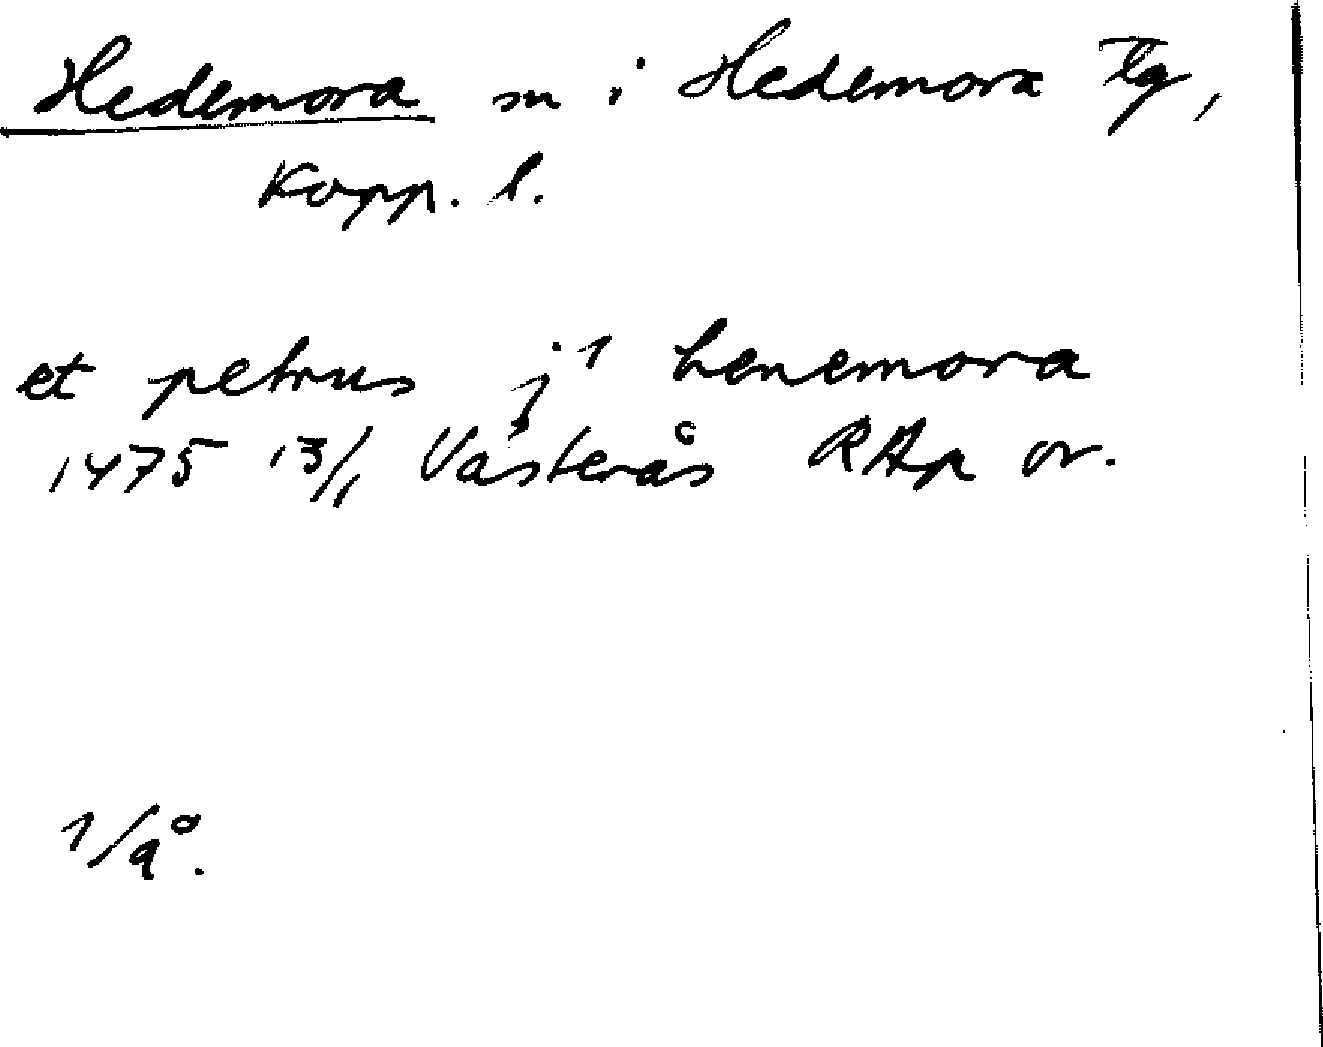 Hedemora sn i Hedemora tg,
Kopp. l.
et petrus j 1 henemora
1475 13/1 Västerås RAp or.
1/ å.